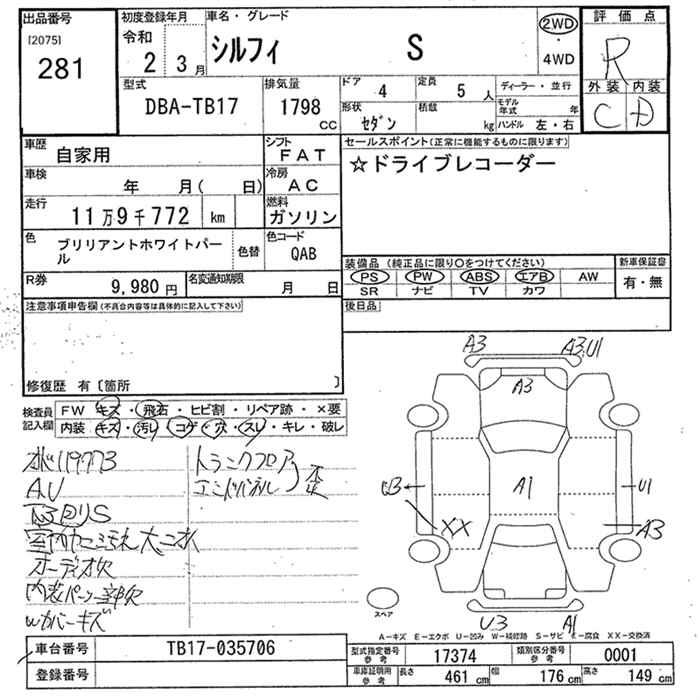 出品番号
[2075]
281
初度登録年月
令和
2 3月
車名・グレード
シルフィ S
2WD
・
4WD
評価点
R
外装 内装
C D
型式
DBA-TB17
排気量
1798 CC
ドア
4
定員
5 人
形状
セダン
積載
kg
ディーラー・並行
モデル年式 年
ハンドル 左・右
車歴
自家用
シフト
FAT
車検
年 月( 日)
冷房
AC
走行
11万9千772 km
燃料
ガソリン
色
ブリリアントホワイトパール
色替
色コード
QAB
R券
9,980円
名変通知期限
月 日
セールスポイント(正常に機能するものに限ります)
☆ドライブレコーダー
装備品 (純正品に限り〇をつけてください)
PS PW ABS エアB AW
SR ナビ TV カワ
新車保証書
有・無
後日品
注意事項申告欄(不具合内容等は具体的に記入して下さい)
修復歴 有〔箇所 〕
検査員記入欄
FW キズ・飛石・ヒビ割・リペア跡・×要
内装 キズ・汚レ・コゲ・穴・スレ・キレ・破レ
119773
AU
下回りS
オーディオ欠
内装パーツ一部欠
Wカバーキズ
トランクフロア
エンドパネル 歪
A3 A3.U1
A3
U3 A1 U1
XX A3
U3 A1
スペア
A－キズ E－エクボ U－凹み W－補修跡 S－サビ C－腐食 XX－交換済
車台番号
TB17-035706
登録番号
型式指定番号
参考
17374
類別区分番号
参考
0001
車庫証明用
参考
長さ
461 cm
幅
176 cm
高さ
149 cm